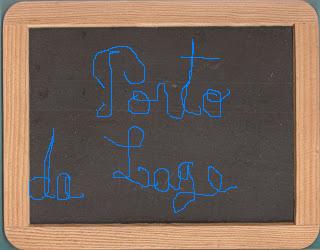 Porto
do Lago